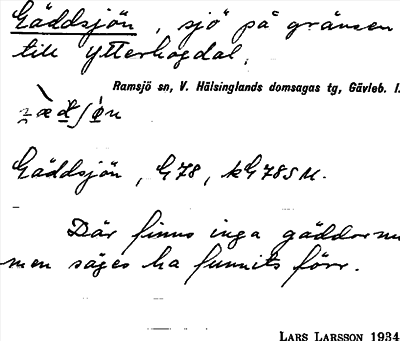 Gäddsjön, sjö på gränsen
till Ytterhogdal.
Ramsjö sn, V. Hälsinglands domsagas tg, Gävleb. l.
Gäddsjön, G78, kG78SM.
Där finns inga gäddor nu
men säges ha funnits förr.
LARS LARSSON 1934